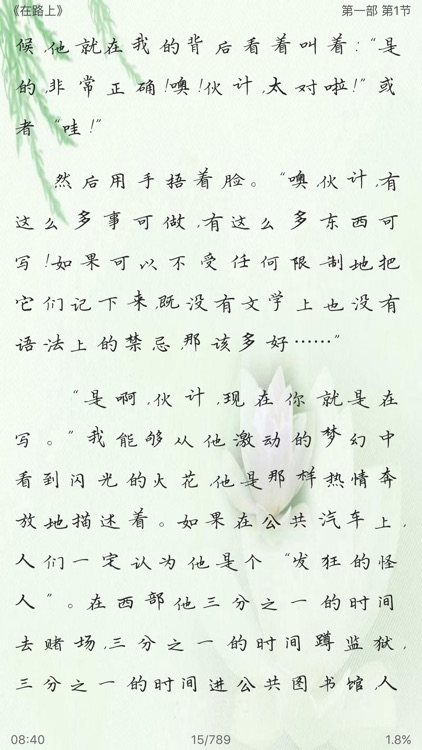 《在路上》 第一部 第1节
候,他就在我的背后看着叫着:“是
的,非常正确!噢!伙计,太对啦!”或
者“哇!”
然后用手捂着脸。“噢,伙计,有
这么多事可做,有这么多东西可
写!如果可以不受任何限制地把
它们记下来,既没有文学上也没有
语法上的禁忌,那该多好……”
“是啊,伙计,现在你就是在
写。”我能够从他激动的梦幻中
看到闪光的火花,他是那样热情奔
放地描述着。如果在公共汽车上,
人们一定认为他是个“发狂的怪
人”。在西部他三分之一的时间
去赌场,三分之一的时间蹲监狱,
三分之一的时间进公共图书馆,人
08:40 15/789 1.8%